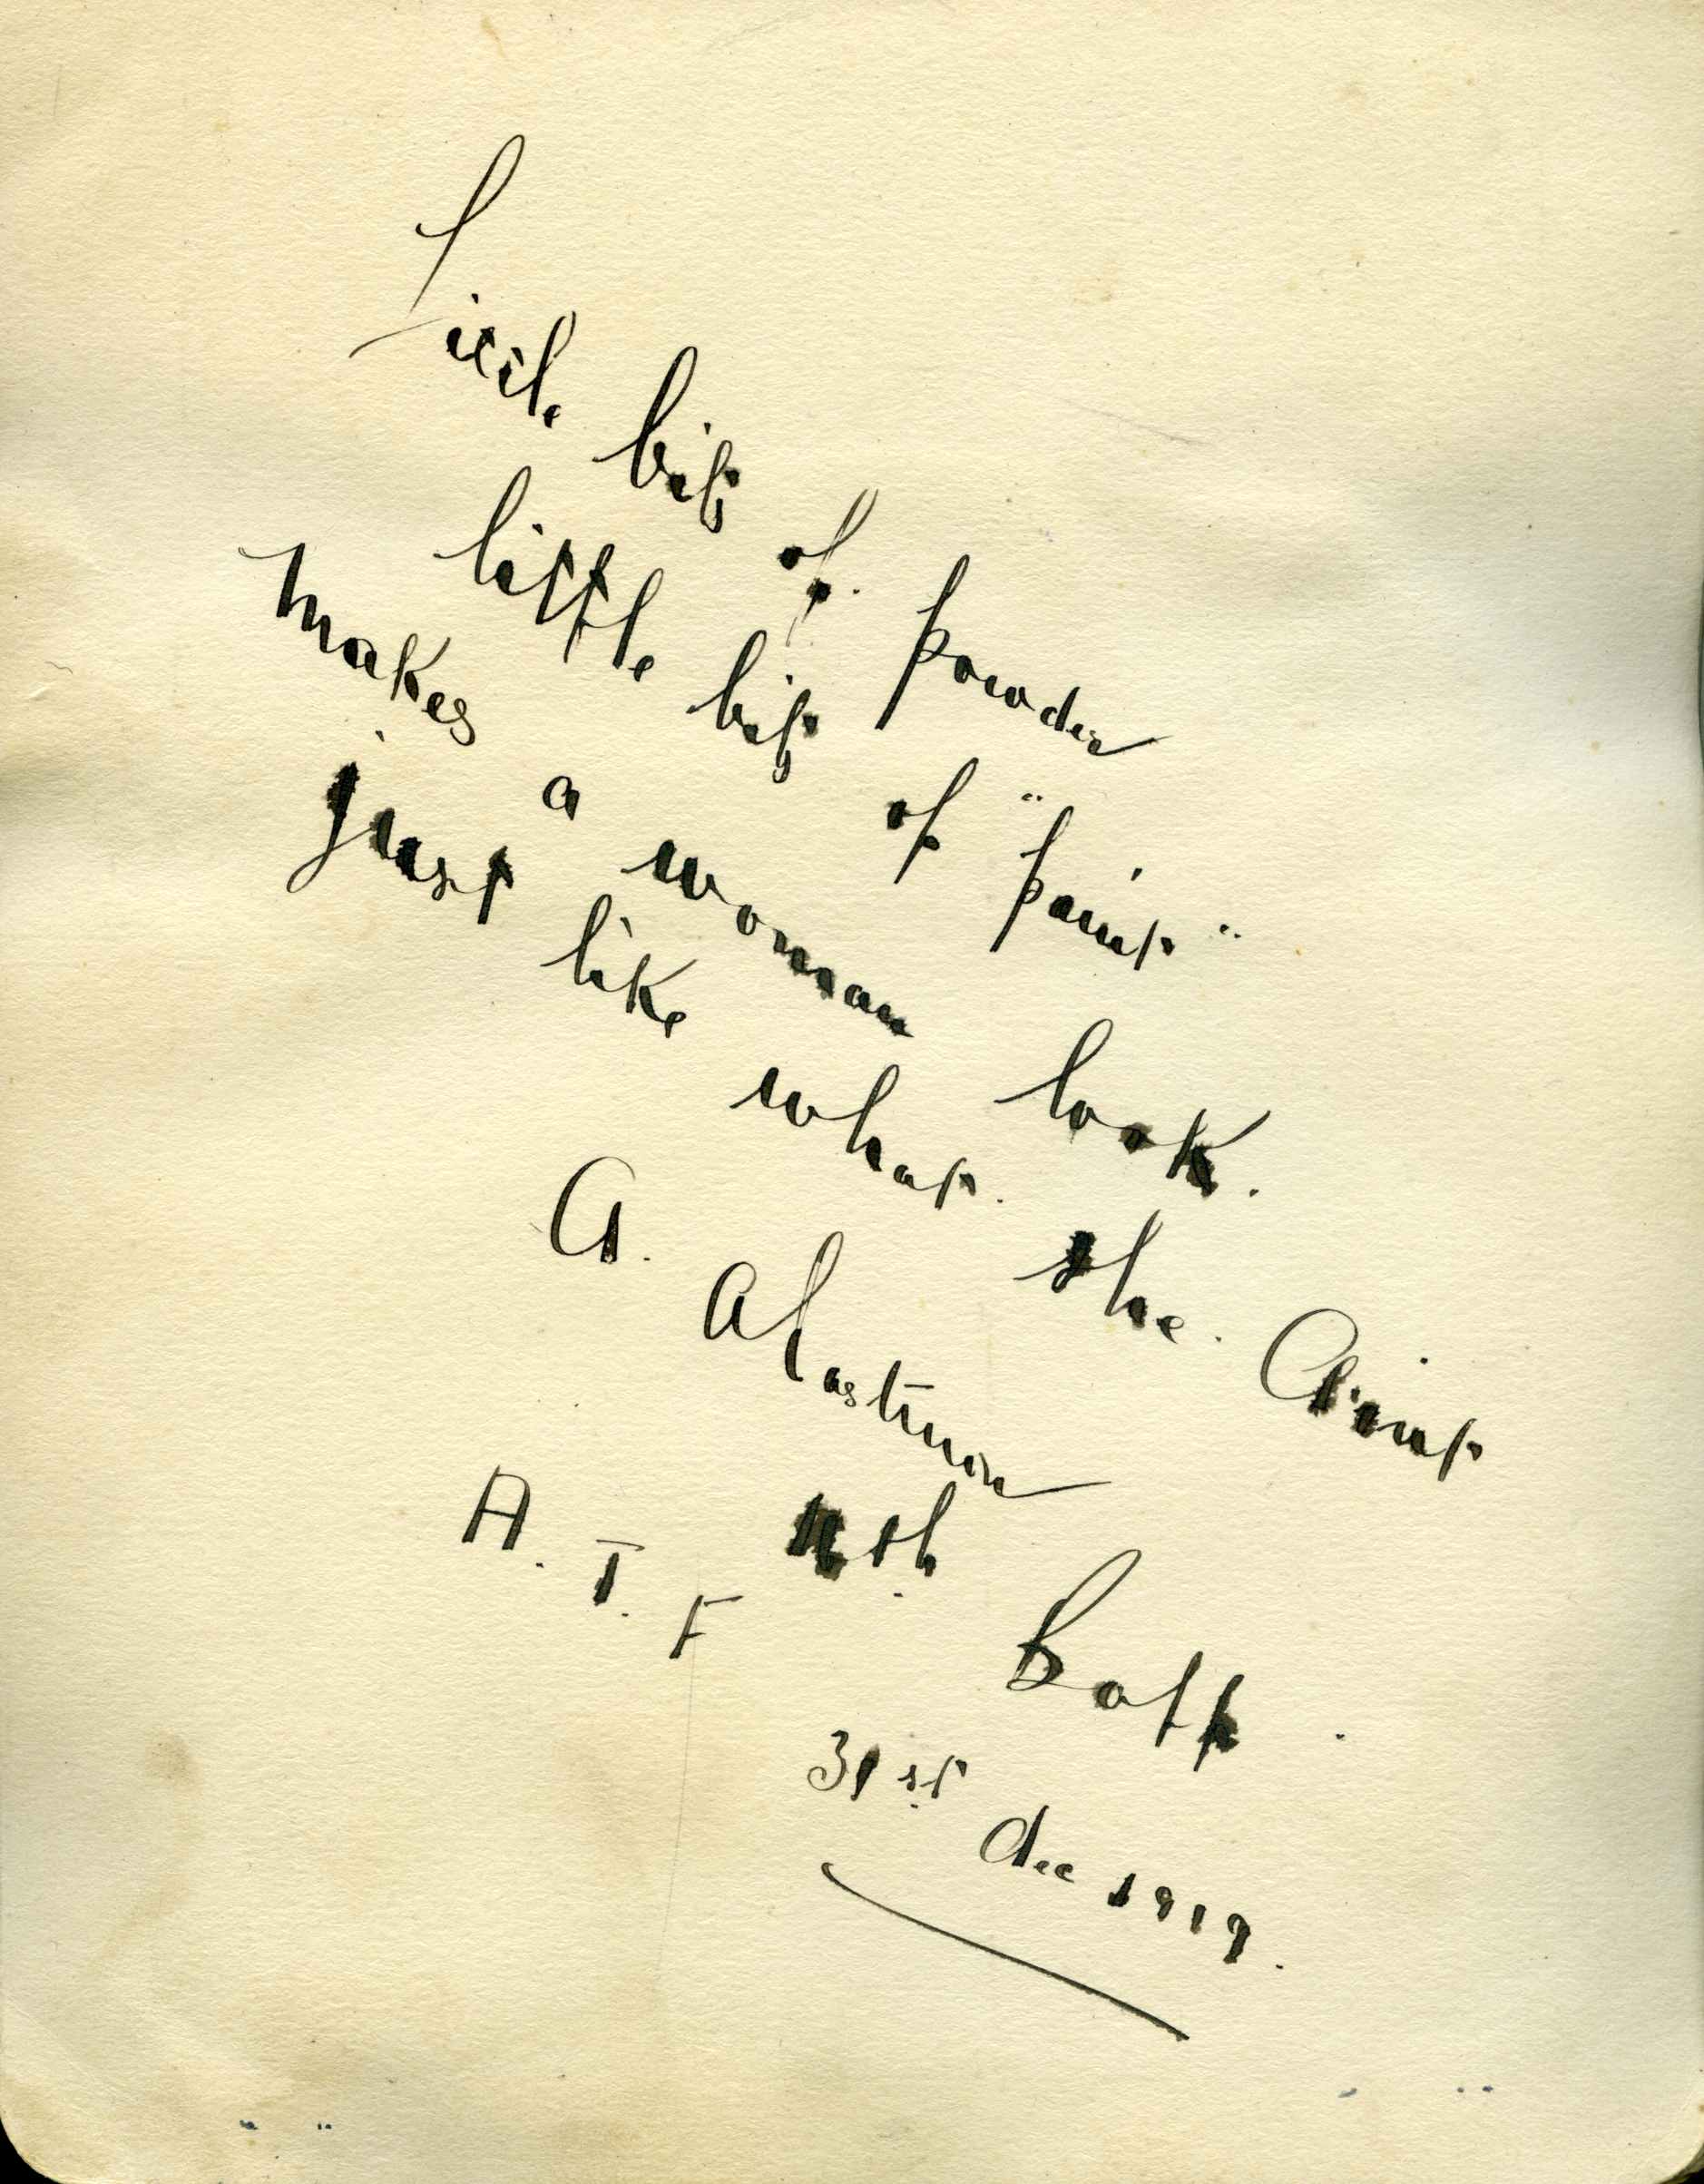 Little bits of powder
little bits of "paint"
makes a woman look.
just like what. she. Aint
A.
A. I. F
Batt.
31st Dec 1919.